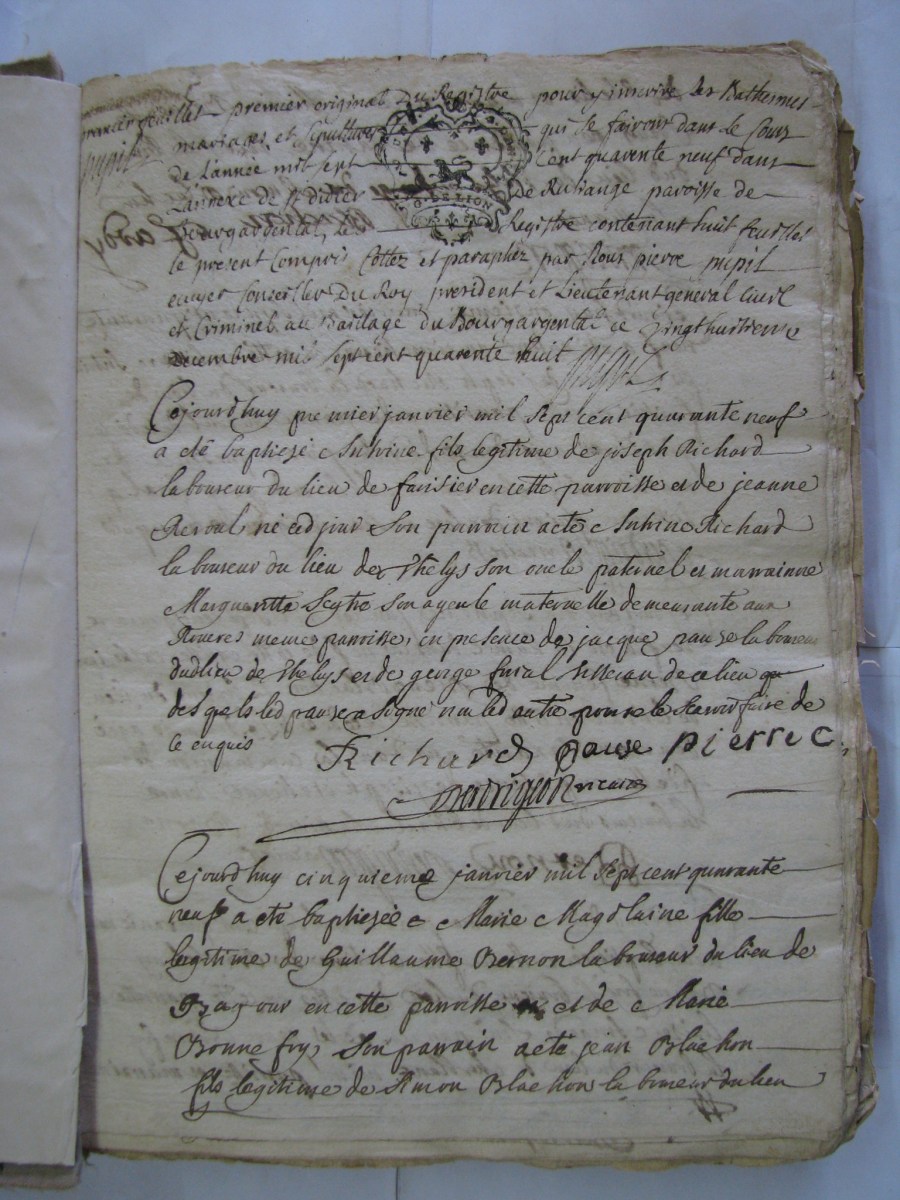 premier feuillet premier original Du Registre pour y inscrire les Bathemes
mariages et Sepultures qui se fairont dans le Cours
pupil
de L'année mil sept Cent quarente neuf dans
L'annexe de St didier De Rutiange paroisse de
Bourgardental, le Registre contenant huit feuillets
G. DE LION
le present Compris Cottez et paraphez par Nous pierre pupil
ecuyer Conseiller Du Roy president et Lieutenant general Civil
et Criminel au Bailliage du Bourgargental ce vingthuitieme
decembre mil sept cent quarente huit pupil
Cejourdhuy premier janvier mil sept cent quarante neuf
a eté baptisé Antoine fils legitime de joseph Richard
laboureur du lieu de farisier en cette parroisse et de jeanne
Reroul né led jour Son parrain a eté Antoine Richard
laboureur du lieu de Thelys son oncle paternel et marrainne
Margueritte Seytre son ayeule maternelle demeurante aux
Roueres meme parroisse, en presence de jacque pause laboureur
dudlieu de Thelys et de george fural tisseran de ce lieu
desquels led pause a signé non led autre pour ne le scavoir faire de
ce enquis Richard pause pierre C
vicaire
Cejourdhuy cinquieme janvier mil sept cent quarante
neuf a eté baptisée Marie Magdlaine fille
legitime de Guillaume Bernon laboureur du lieu de
en cette parroisse et de Marie
Bonnefoy, Son parrain a eté jean Blachon
fils legitime de Simon Blachon laboureur du lieu